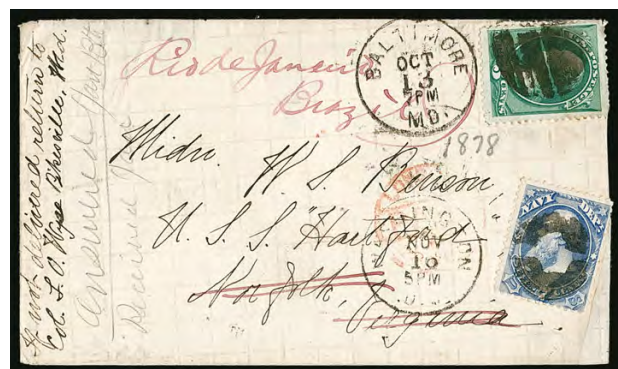 If not delivered return to
Col. F. O. Wyse Pikesville, Md.
Answered Jan 13th
Received
Rio de Janeiro
Brazil
BALTIMORE
OCT
13
7PM
MD.
1878
Midn. W. S. Benson
U. S. S. "Hartford"
Norfolk,
Virginia
WASHINGTON
NOV
16
5PM
U.S. POSTAGE
NAVY DEPT.